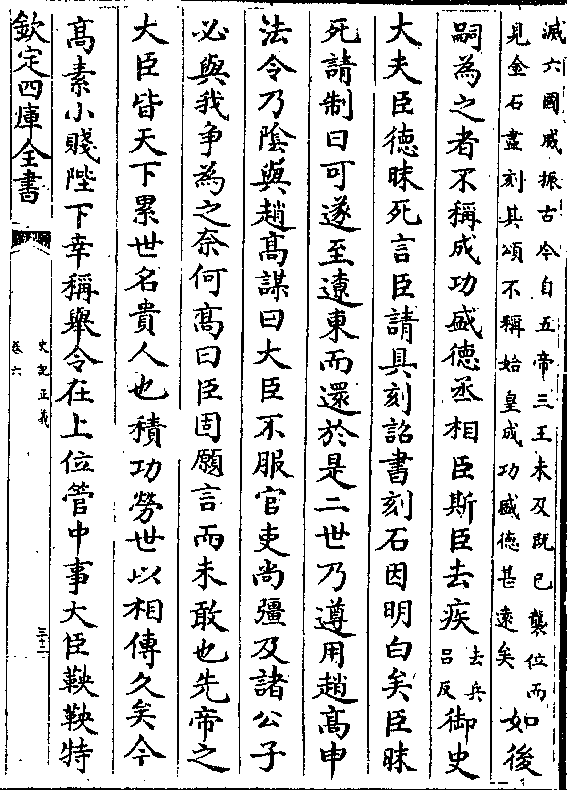 滅六國威振古今自五帝三王未及既已襲位而
見金石盡刻其頌不稱始皇成功盛徳甚逺矣
如後
嗣為之者不稱成功盛徳丞相臣斯臣去疾
去兵
吕反
御史
大夫臣徳昧死言臣請具刻詔書刻石因明白矣臣昧
死請制曰可遂至遼東而還於是二世乃遵用趙髙申
法令乃隂與趙髙謀曰大臣不服官吏尚彊及諸公子
必與我争為之奈何髙曰臣固願言而未敢也先帝之
大臣皆天下累世名貴人也積功勞世以相傳久矣今
髙素小賤陛下幸稱舉令在上位管中事大臣鞅鞅特
欽定四庫全書
史記正義
卷六
三十二